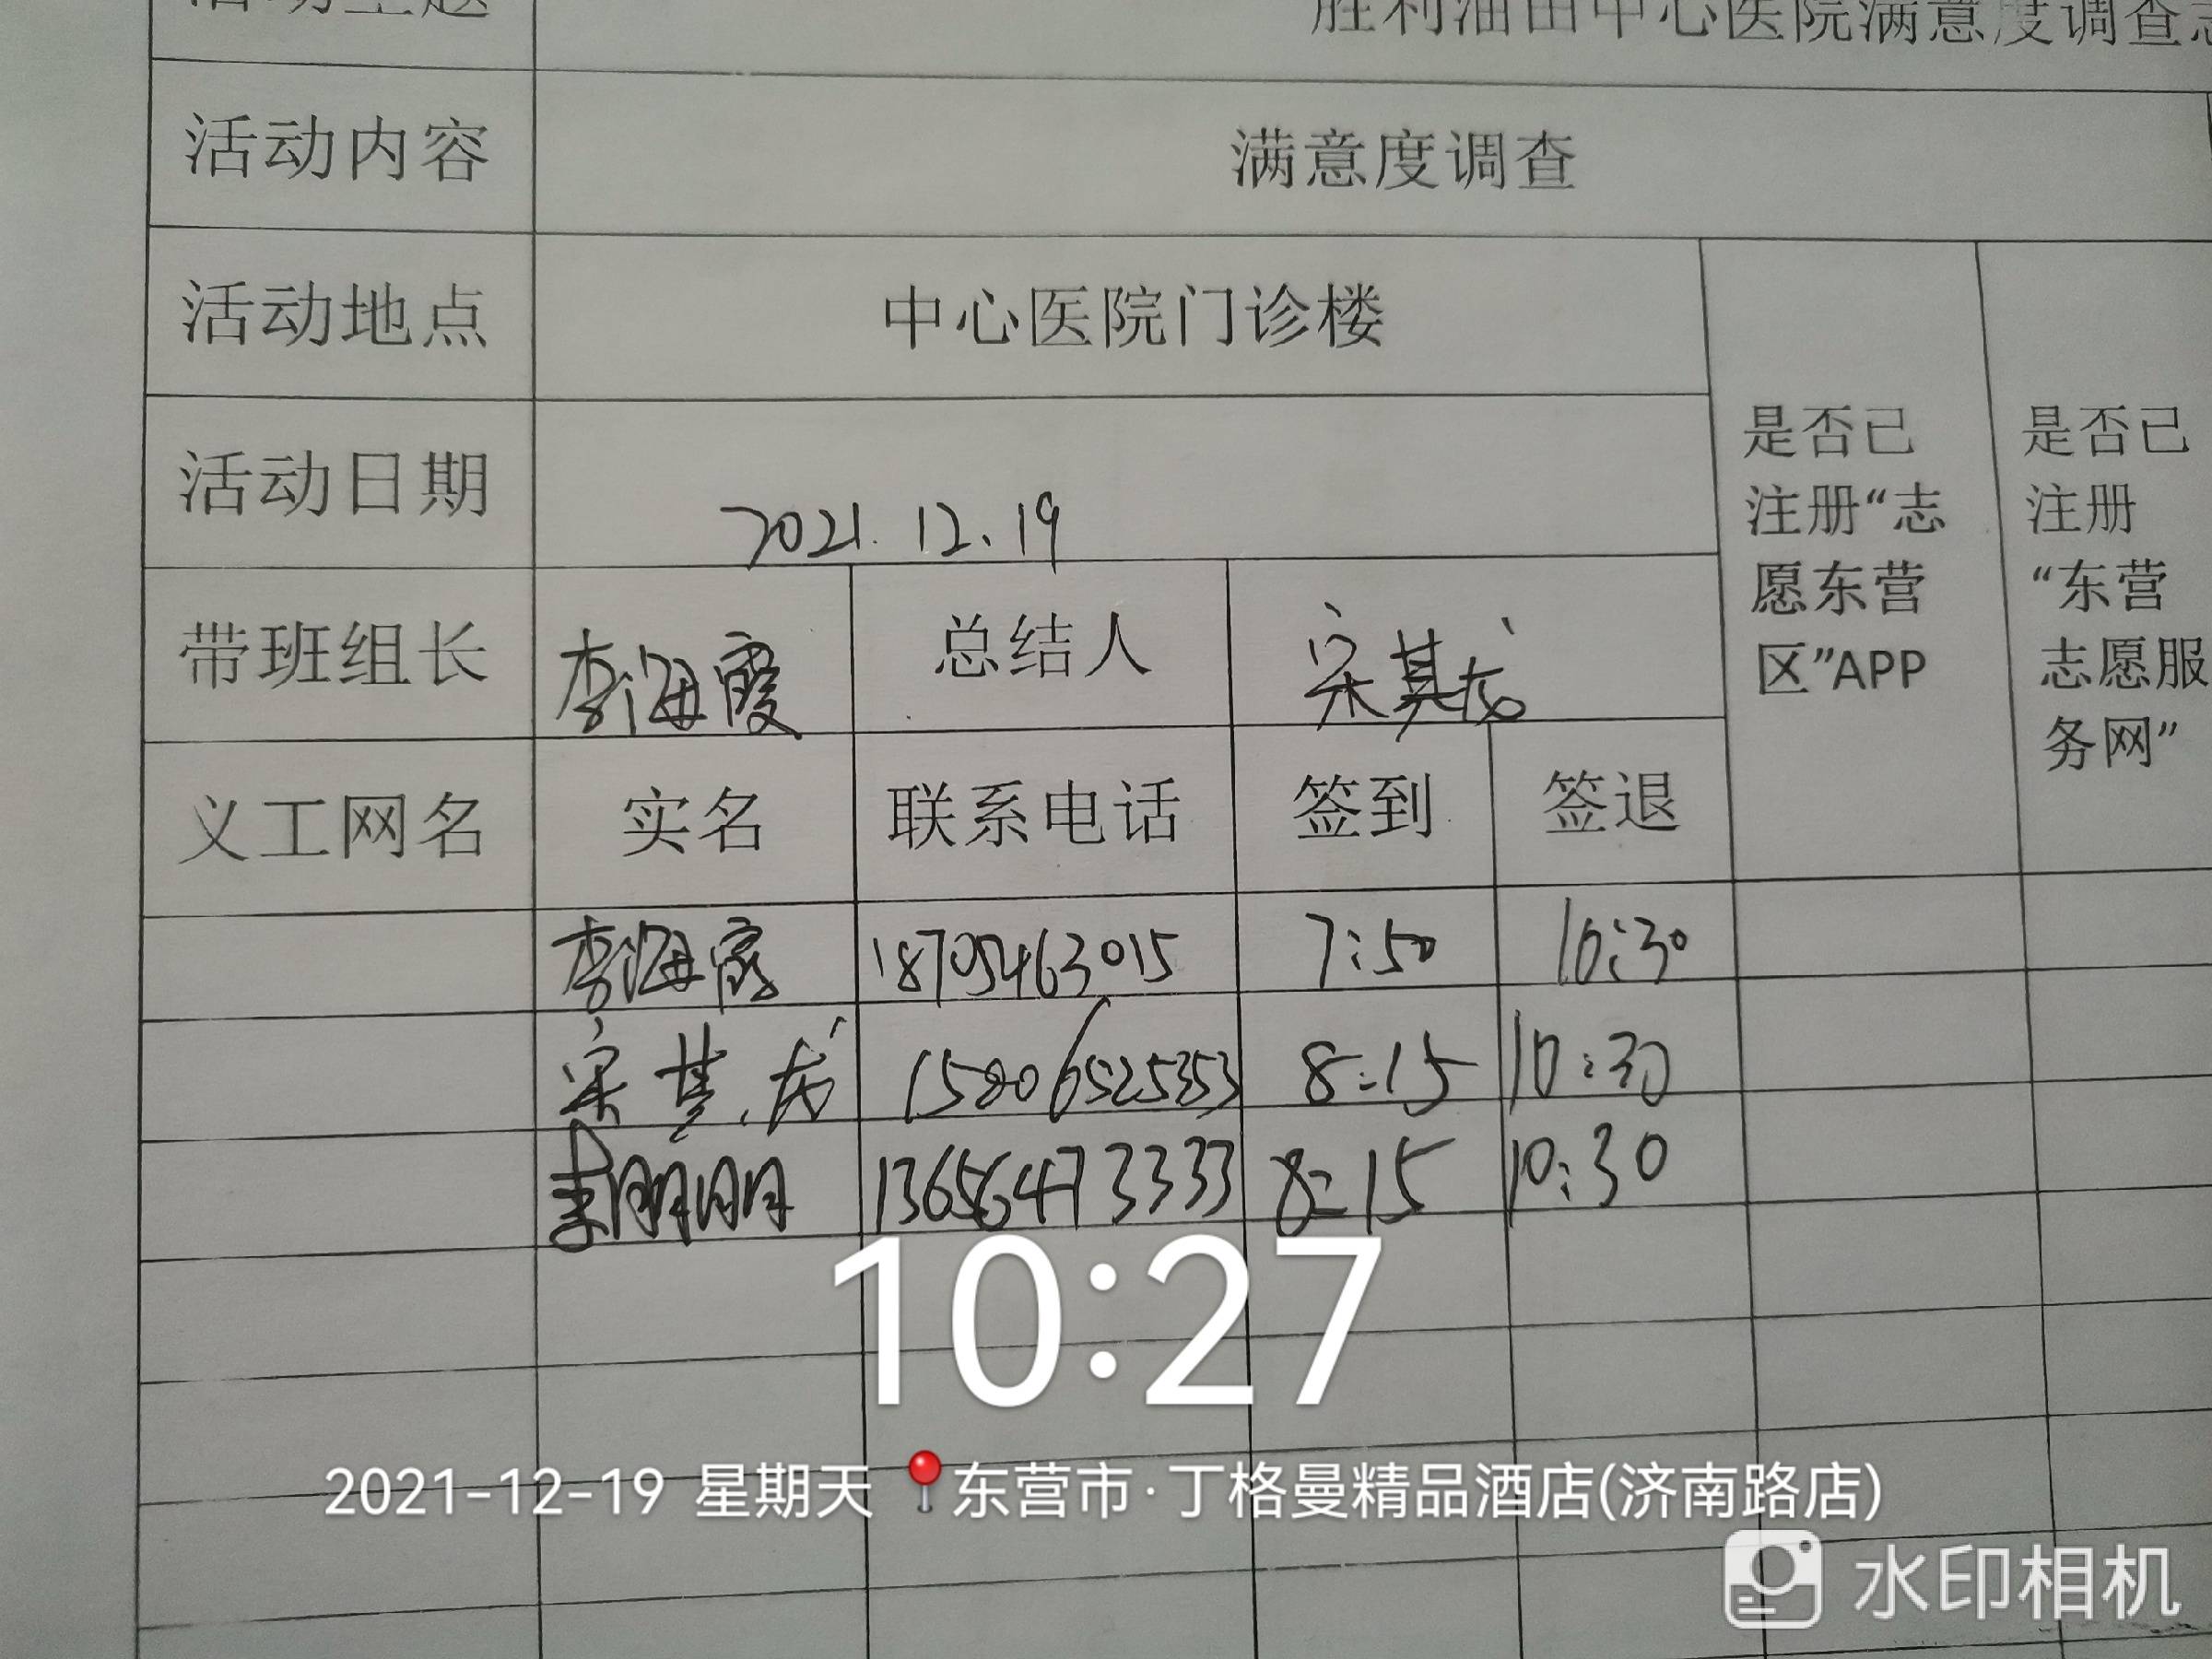 活动主题 胜利油田中心医院满意度调查志
活动内容 满意度调查
活动地点 中心医院门诊楼
活动日期 2021.12.19
带班组长 李海霞 总结人 宋其龙
是否已注册“志愿东营区”APP
是否已注册“东营志愿服务网”
义工网名 实名 联系电话 签到 签退
李海霞 18705463015 7:50 10:30
宋其龙 15806525353 8:15 10:30
明明 13656473333 8:15 10:30
10:27
2021-12-19 星期天 东营市·丁格曼精品酒店(济南路店)
水印相机